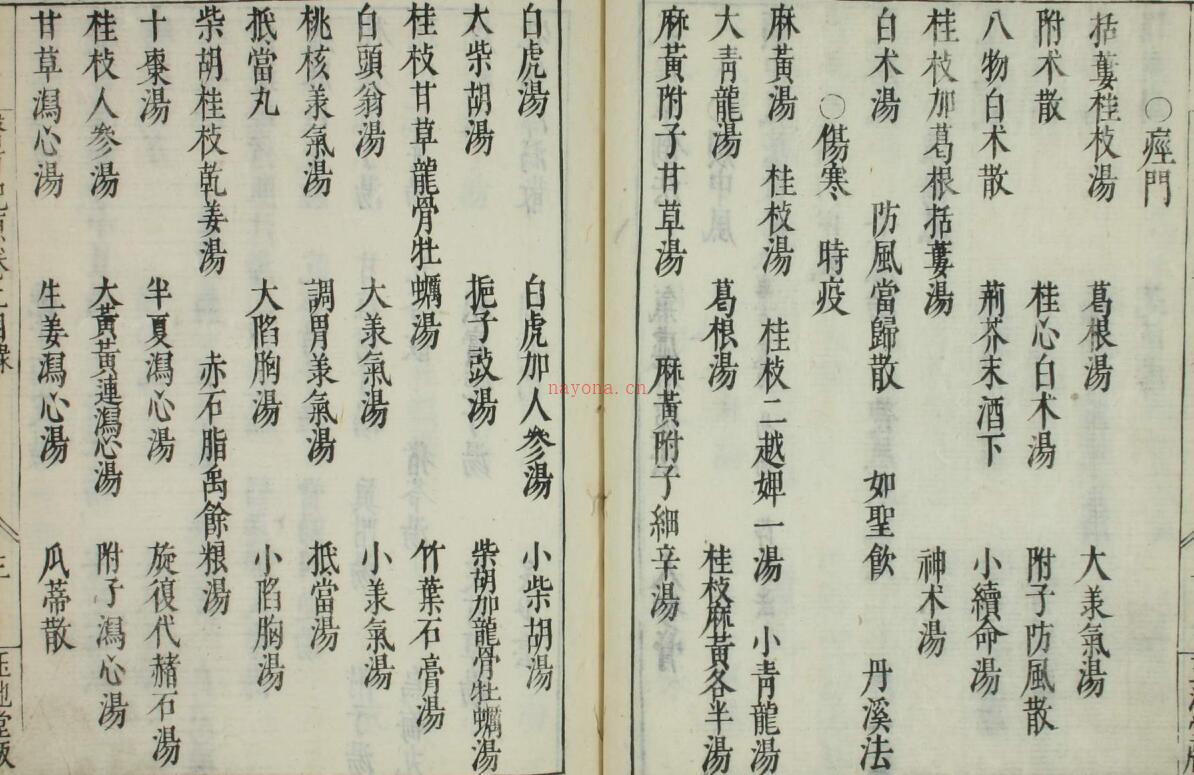 ○痙門
括蔞桂枝湯 葛根湯 大羕氣湯
附术散 桂心白术湯 附子防風散
八物白术散 荊芥末酒下 小續命湯
桂枝加葛根括蔞湯 神术湯
白术湯 防風當歸散 如聖飲 丹溪法
○傷寒 時疫
麻黃湯 桂枝湯 桂枝二越婢一湯 小靑龍湯
大靑龍湯 葛根湯 桂枝麻黃各半湯
麻黃附子甘草湯 麻黃附子細辛湯
白虎湯 白虎加人參湯 小柴胡湯
大柴胡湯 梔子豉湯 柴胡加龍骨牡蠣湯
桂枝甘草龍骨牡蠣湯 竹葉石膏湯
白頭翁湯 大羕氣湯 小羕氣湯
桃核羕氣湯 調胃羕氣湯 抵當湯
抵當丸 大陷胸湯 小陷胸湯
柴胡桂枝乾姜湯 赤石脂禹餘粮湯
十棗湯 半夏瀉心湯 旋復代赭石湯
桂枝人參湯 大黃黃連瀉心湯 附子瀉心湯
甘草瀉心湯 生姜瀉心湯 瓜蒂散
nayona.cn